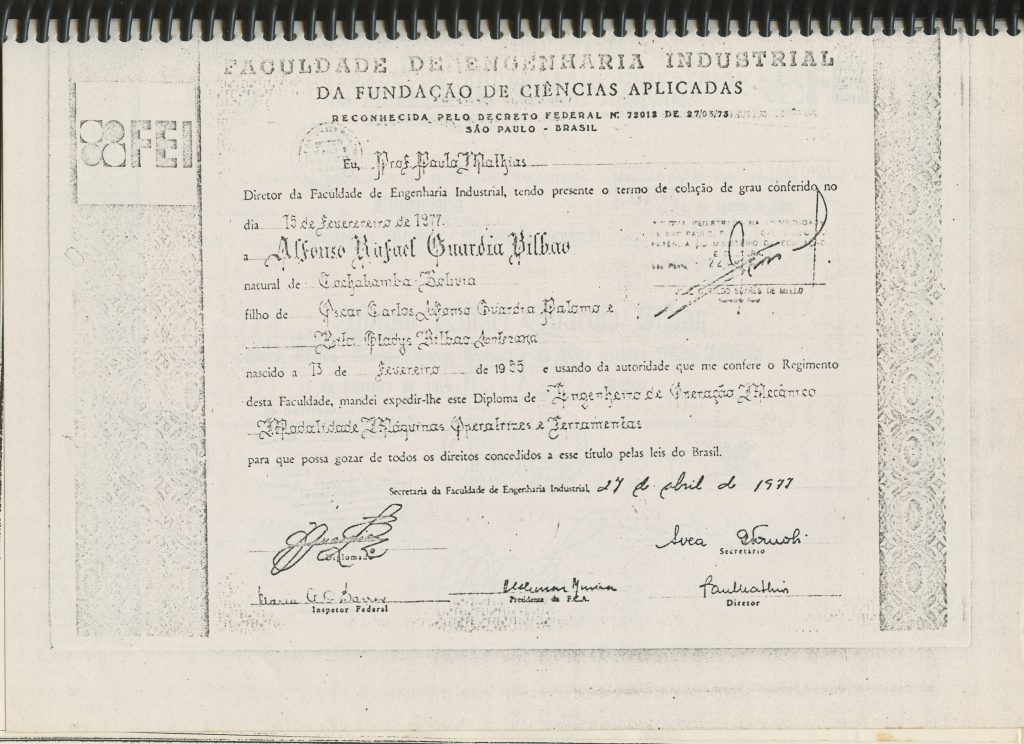 FACULDADE DE ENGENHARIA INDUSTRIAL
DA FUNDAÇÃO DE CIÊNCIAS APLICADAS
RECONHECIDA PELO DECRETO FEDERAL N.° 72012 DE 27/03/73
SÃO PAULO - BRASIL
FEI
Eu, Prof. Paulo Mathias
Diretor da Faculdade de Engenharia Industrial, tendo presente o termo de colação de grau conferido no
dia 15 de feverereiro de 1977.
a Alfonso Rafael Guardia Bilbao
natural de Cochabamba-Bolivia
filho de Oscar Carlos Guardia Palomo e
Gladys Bilbao
nascido a 13 de fevereiro de 1955 e usando da autoridade que me confere o Regimento
desta Faculdade, mandei expedir-lhe este Diploma de Engenheiro de Operação Mecânico
Modalidade Máquinas Operatrizes e Ferramentas
para que possa gozar de todos os direitos concedidos a esse título pelas leis do Brasil.
Secretaria da Faculdade de Engenharia Industrial, 27 de abril de 1977
Diplomado
Secretário
Inspetor Federal
Presidente da F.C.A.
Diretor